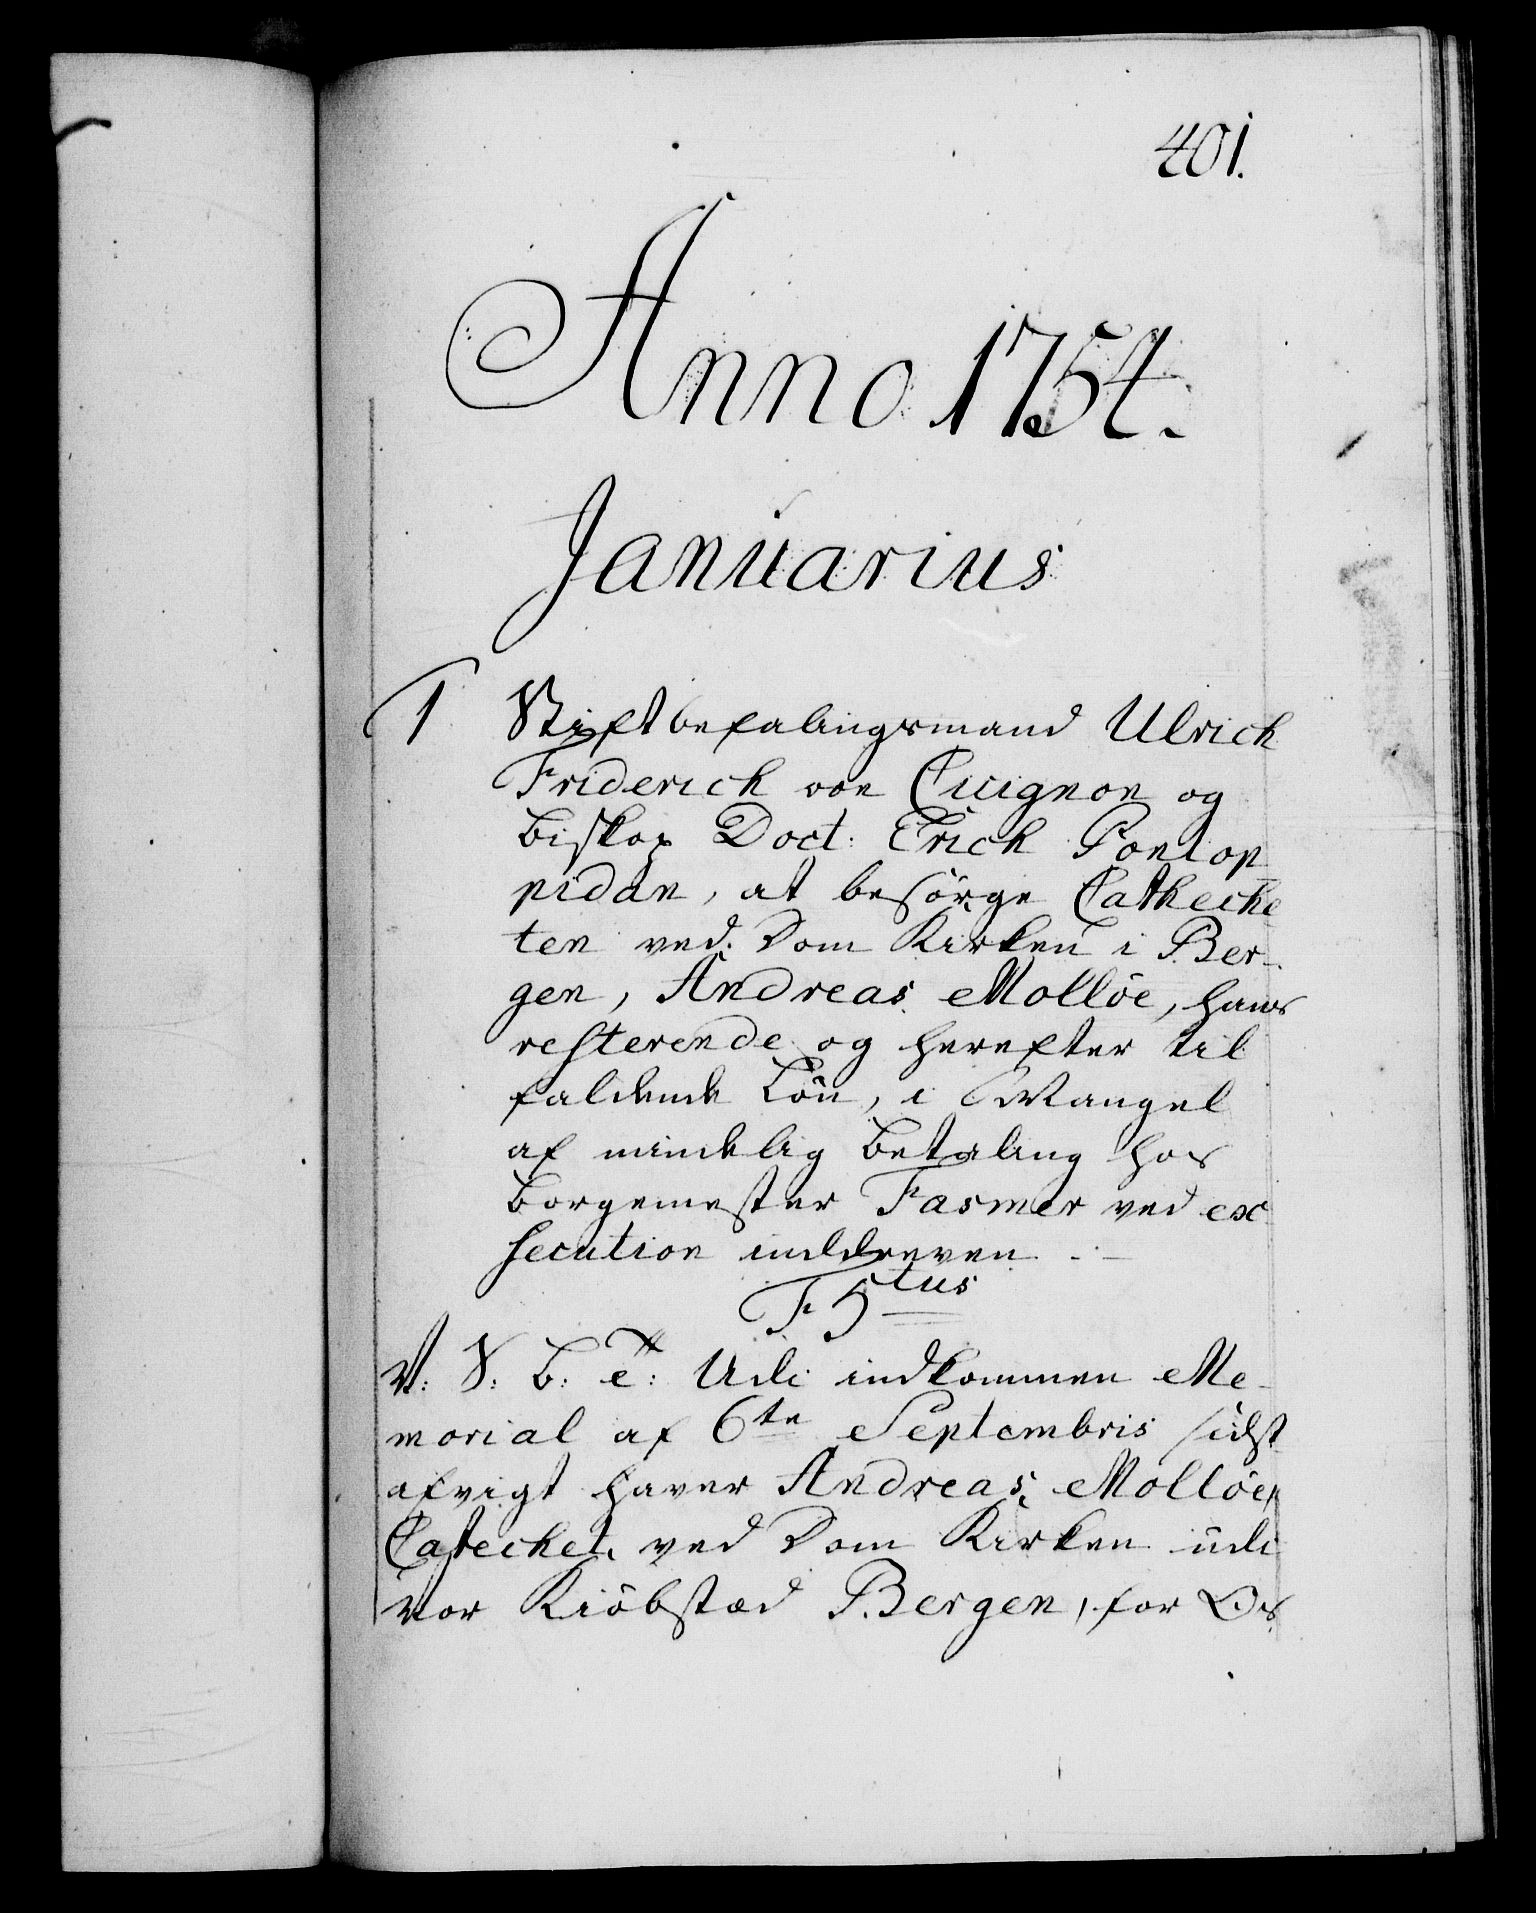 401.
Anno 1754.
Januarius
1 Stiftbefalingsmand Ulrich
Friderich von Cicignon og
Biskop Doct: Erich Pontop
pidan, at besörge Catheche
ten ved Dom Kirken i Ber-
gen, Andreas Mollöe, hans
resterende og herefter til
faldende Lön, i Mangel
af mindelig Betaling hos
Borgemester Fasmer ved ex
secution inddreven.
F 5tus
V: S: B: e: Udi indkommen Me-
morial af 6te Septembris sidst
afvigt haver Andreas Mollöe,
Catechet ved Dom Kirken udi
vor Kiöbstæd Bergen, for Os